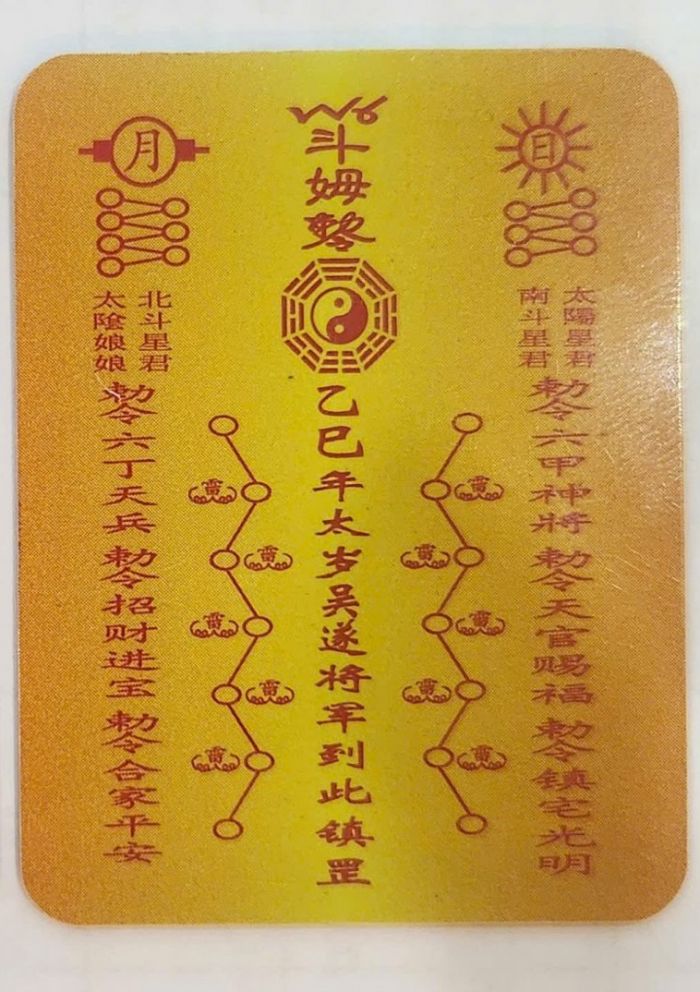 日
太陽星君
南斗星君
勅令六甲神將勅令天官赐福勅令镇宅光明
雷
雷
雷
雷
雷
斗姆敕令
乙巳年太岁吴遂将军到此镇罡
雷
雷
雷
雷
雷
月
北斗星君
太陰娘娘
勅令六丁天兵勅令招财进宝勅令合家平安